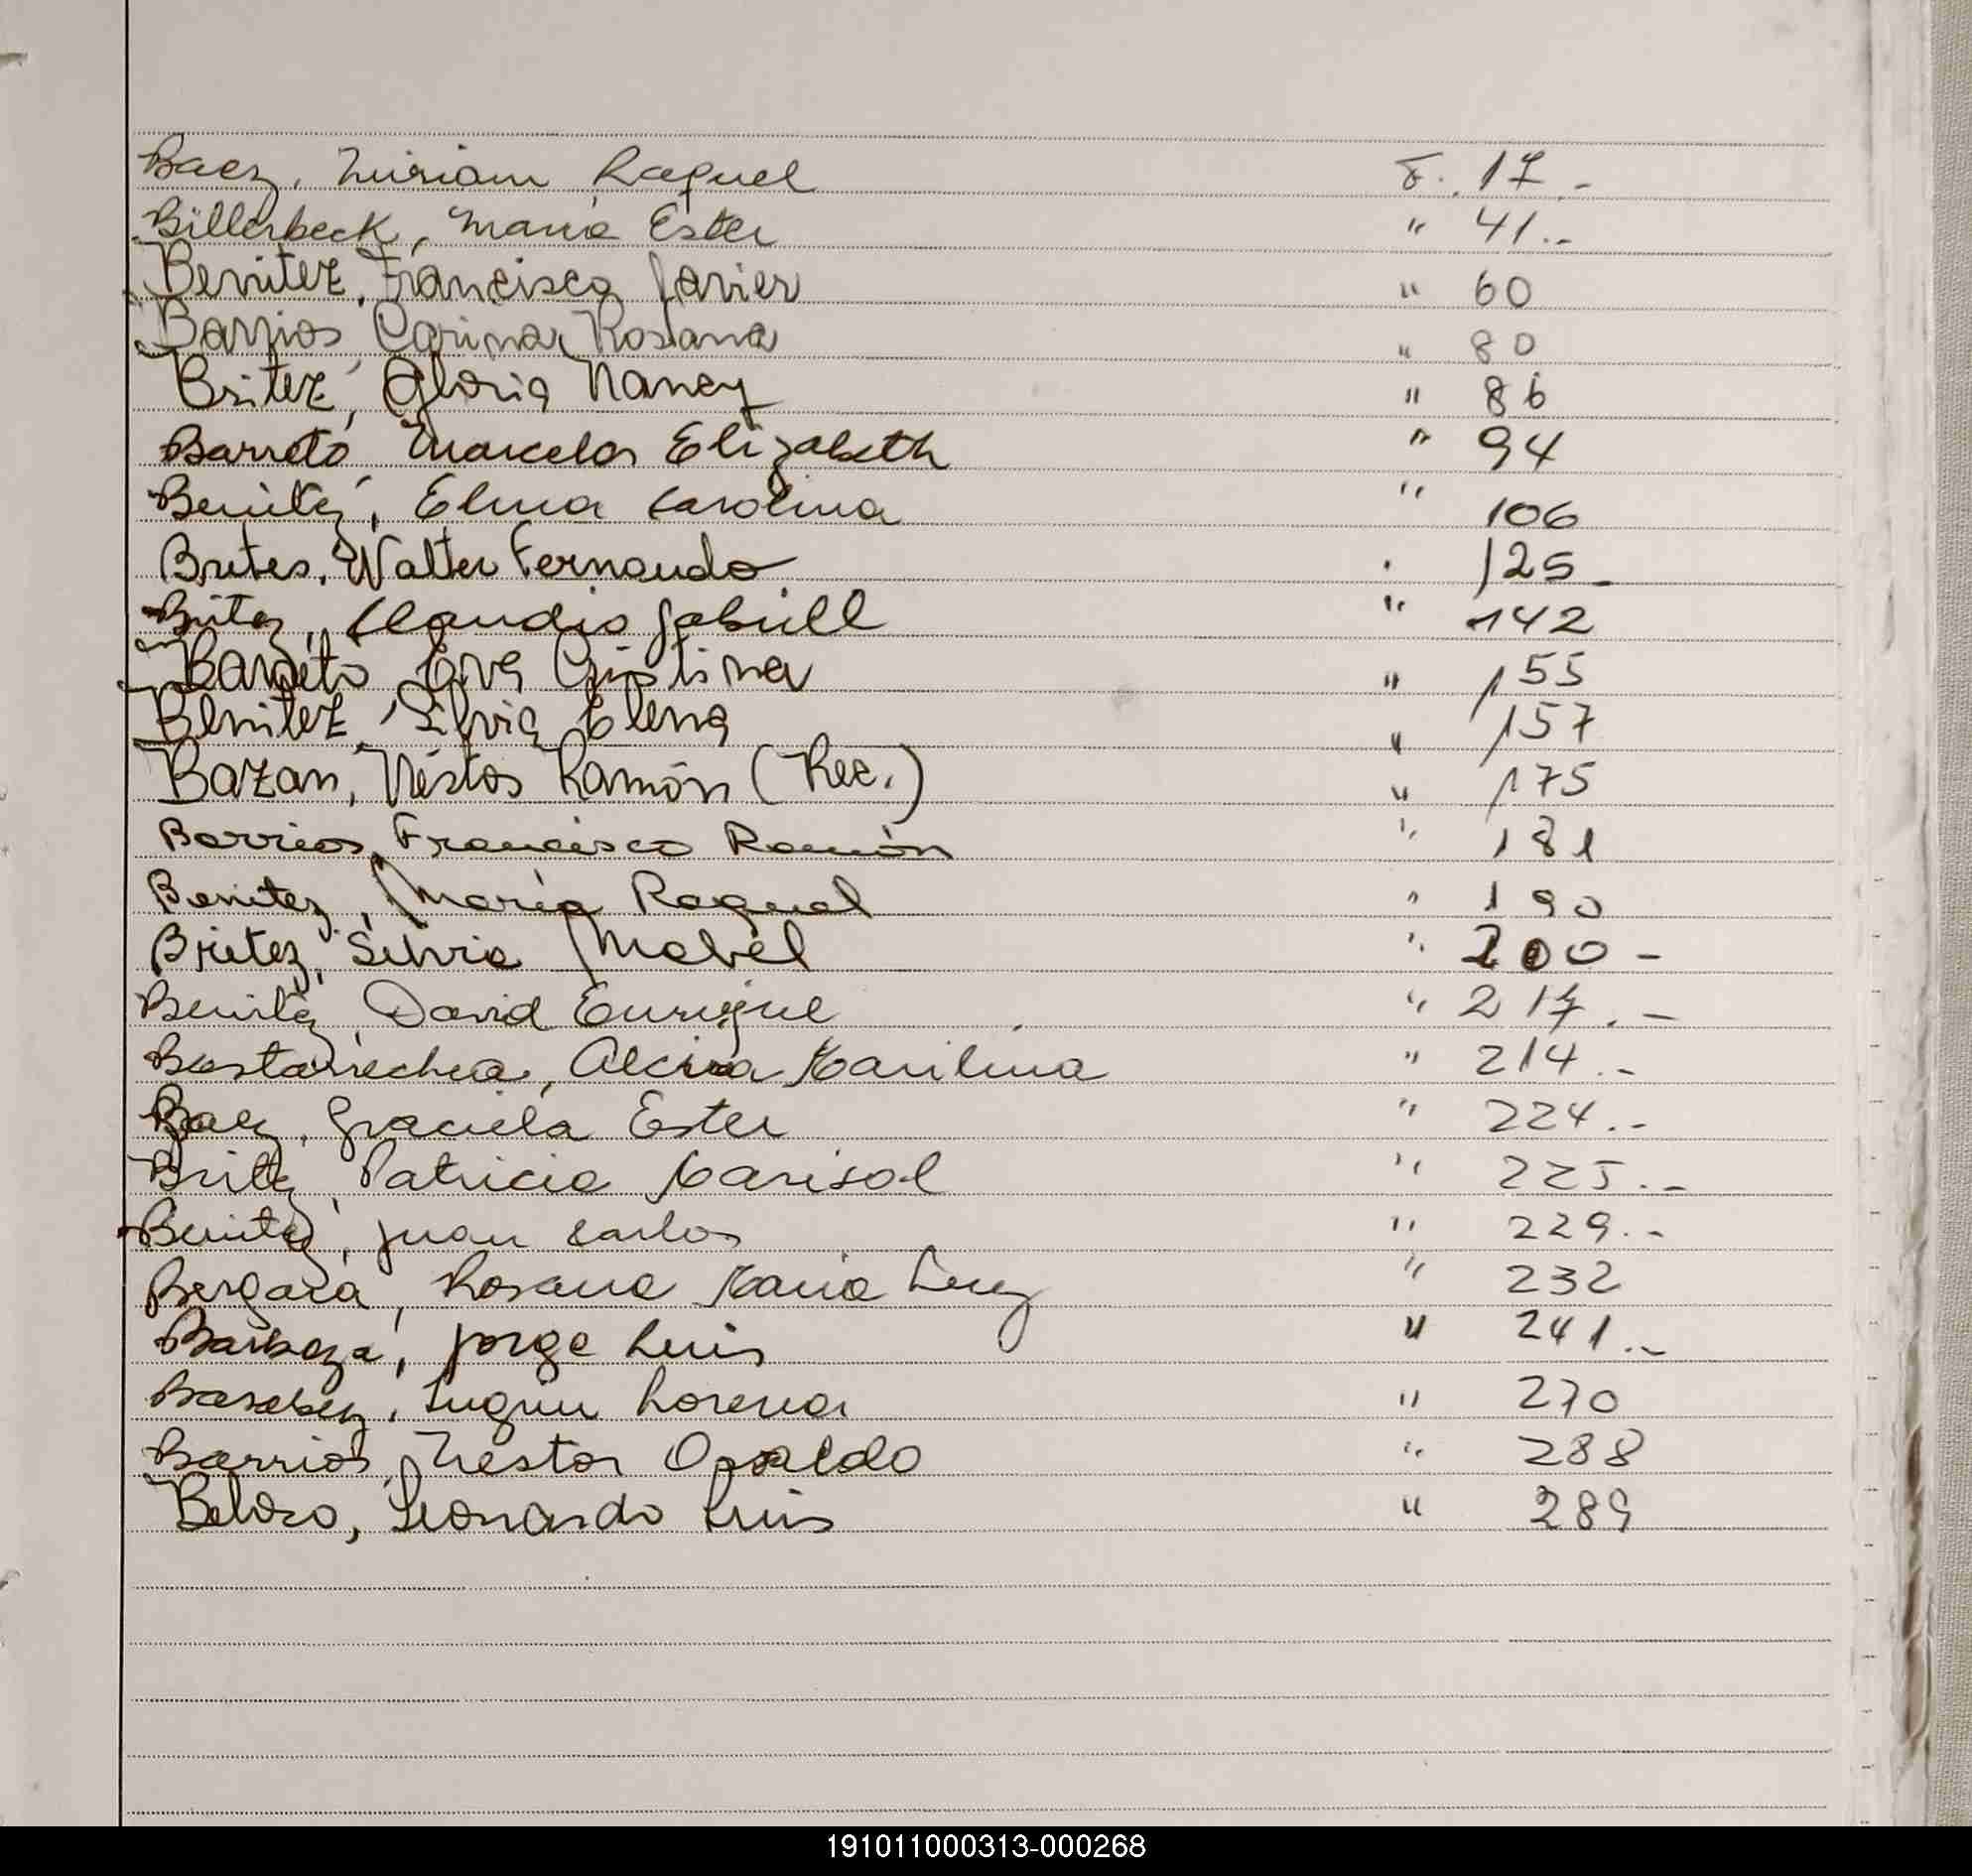 Baez, Miriam Raquel F. 17.-
Billerbeck, María Ester " 41.-
Benitez, Francisco Javier " 60
Barrios, Carina Rosana " 80
Britez, Gloria Nancy " 86
Barreto, Marcela Elizabeth " 94
Benitez, Elma Carolina " 106
Brites, Walter Fernando " 125-
Britez, Claudio Gabriel " 142
Barreto Eva Cristina " 155
Benitez, Silvia Elena " 157
Bazan, Néstor Ramón (Rec.) " 175
Barrios, Francisco Ramón " 181
Benitez, María Raquel " 190
Brietez, Silvia Mabel " 200-
Benitez, David Enrique " 217.-
Alcira Marilina " 214.-
Baez, Graciela Ester " 224.-
Britez, Patricia Marisol " 225.-
Benitez, Juan Carlos " 229.-
Bergara, Rosana Maria Luz " 232
Barboza, Jorge Luis " 241.-
Lorena " 270
Barrios, Néstor Osvaldo " 288
Beloso, Leonardo Luis " 289
191011000313-000268